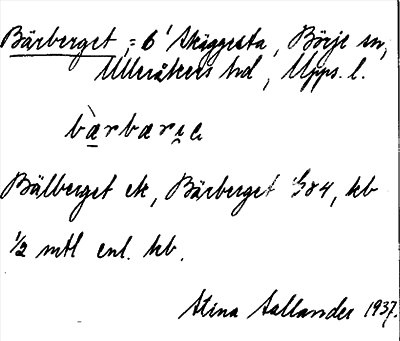 Bärberget, = 6' Skäggesta, Börje sn,
Ulleråkers hd, Upps. l.
bærbærıe
Bälberget ek, Bärberget 484, kb
½ mtl enl. kb.
Stina Sallander 1937.